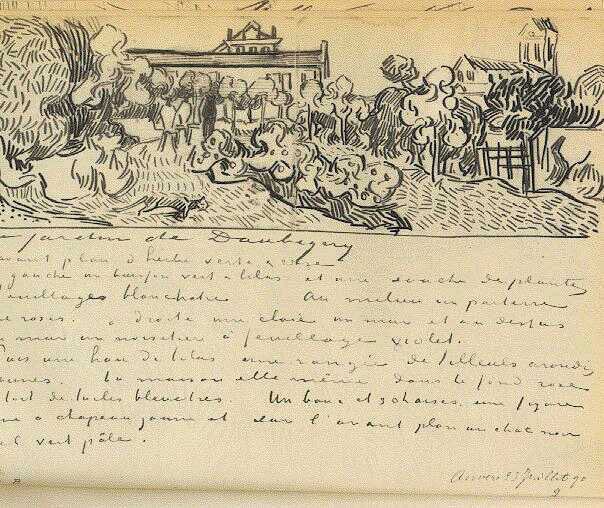 jardin de Daubigny
avant plan d'herbe verte & rose
gauche un buisson vert & lilas et une souche de plantes
feuillages blanchatre Au milieu un parterre
de roses. a droite une claie un mur et au dessus
du mur un noisetier à feuillage violet.
Puis une haie de lilas une rangée de tilleuls arrondis
jaunes. La maison elle même dans le fond rose
toit de tuiles bleuatres. Un banc et 3 chaises, une figure
à chapeau jaune et sur l'avant plan un chat noir
vert pâle.
Auvers 23 Juillet 90